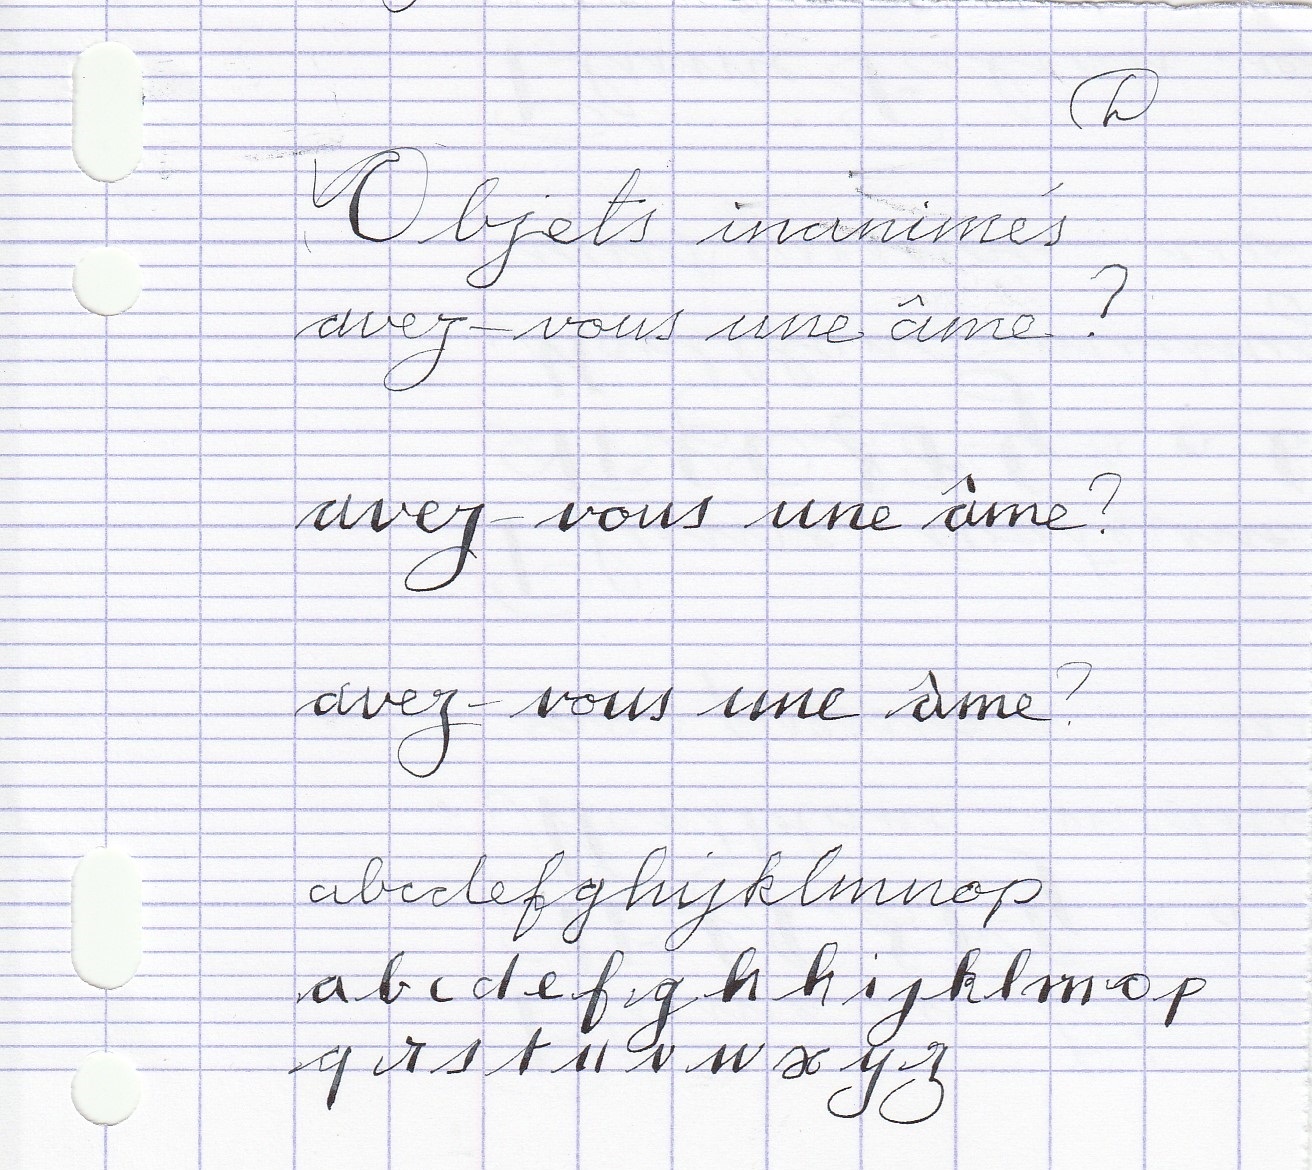 Objets inanimés
avez-vous une âme ?
avez-vous une âme ?
avez-vous une âme ?
abcdefghijklmnop
a b c d e f g h h i j k l m o p
q r s t u v w x y z